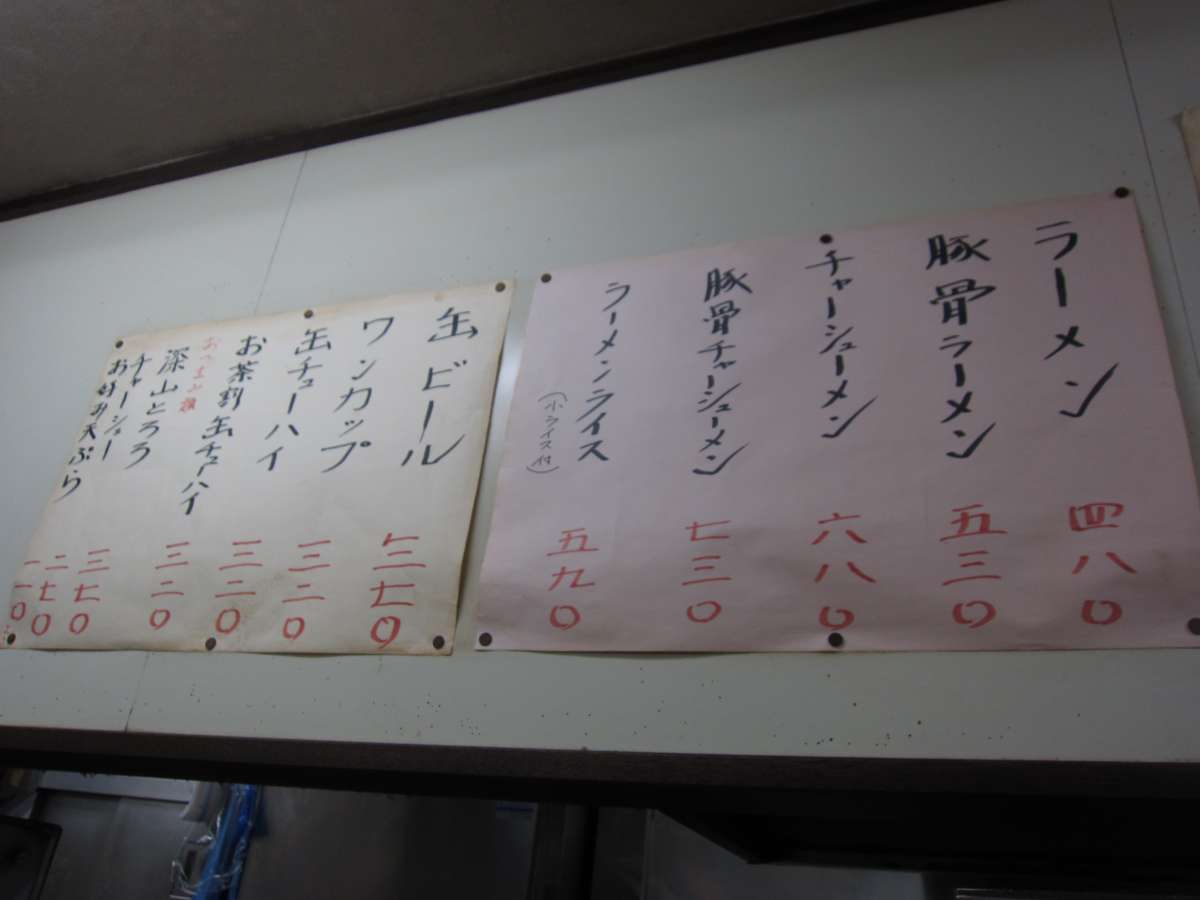 ラーメン 四八〇
豚骨ラーメン 五三〇
チャーシューメン 六八〇
豚骨チャーシューメン 七三〇
ラーメンライス 五九〇
(小ライス付)
缶ビール 三七〇
ワンカップ 三二〇
缶チューハイ 三二〇
お茶割缶チューハイ 三二〇
深山とろろ 三七〇
チャーシュー 二七〇
お好み天ぷら 一一〇